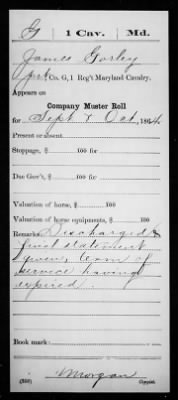 G 1 Cav. Md.
James Gorley
Pvt., Co. G, 1 Reg't Maryland Cavalry.
Appears on
Company Muster Roll
for Sept & Oct, 1864.
Present or
Stoppage, $ 100 for
Due Gov't, $ 100 for
Valuation of horse, $ 100
Valuation of horse equipments, $ 100
Remarks: Discharged &
final statement
given, term of
service having
expired.
Book mark:
(358) Morgan Copyist.